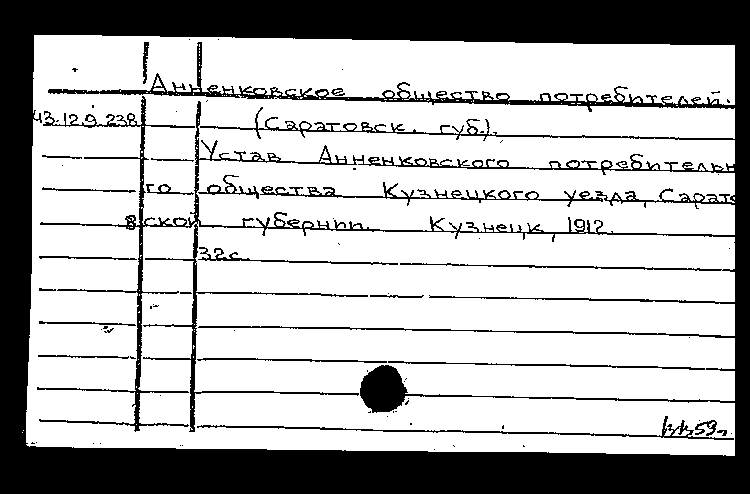 Анненковское общество потребителей.
43.12.9.238 (Саратовск. губ.).
Устав Анненковского потребительн
го общества Кузнецкого уезда, Сарато
вской губернии. Кузнецк, 1912.
32с.